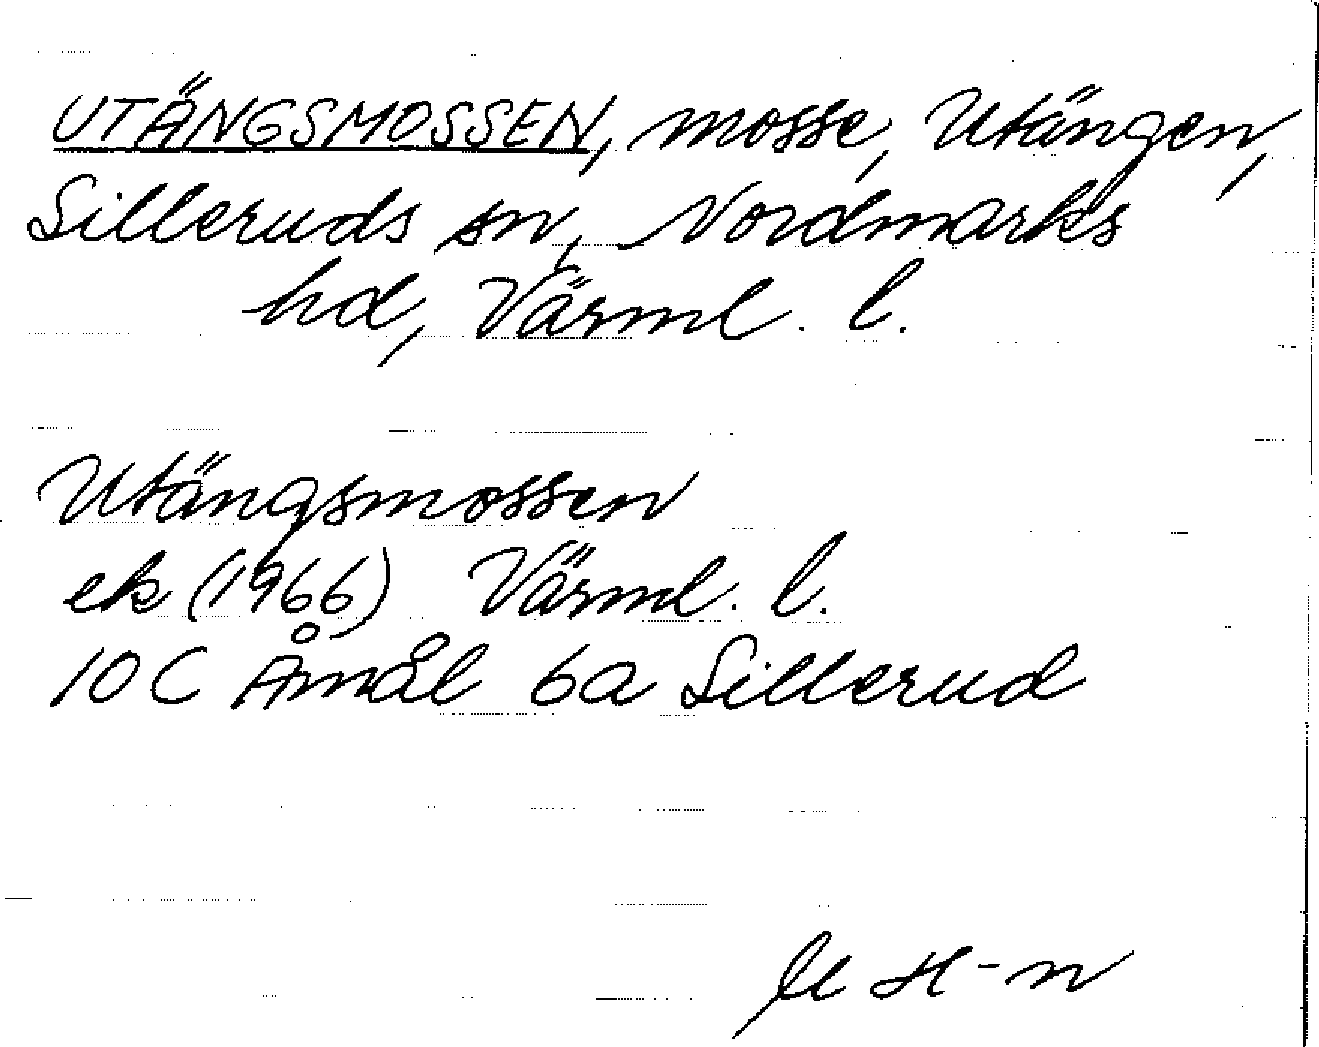 UTÄNGSMOSSEN, mosse, Utängen,
Silleruds sn, Nordmarks
hd, Värml. l.
Utängsmossen
ek (1966) Värml. l.
10 C Åmål 6a Sillerud
H-n